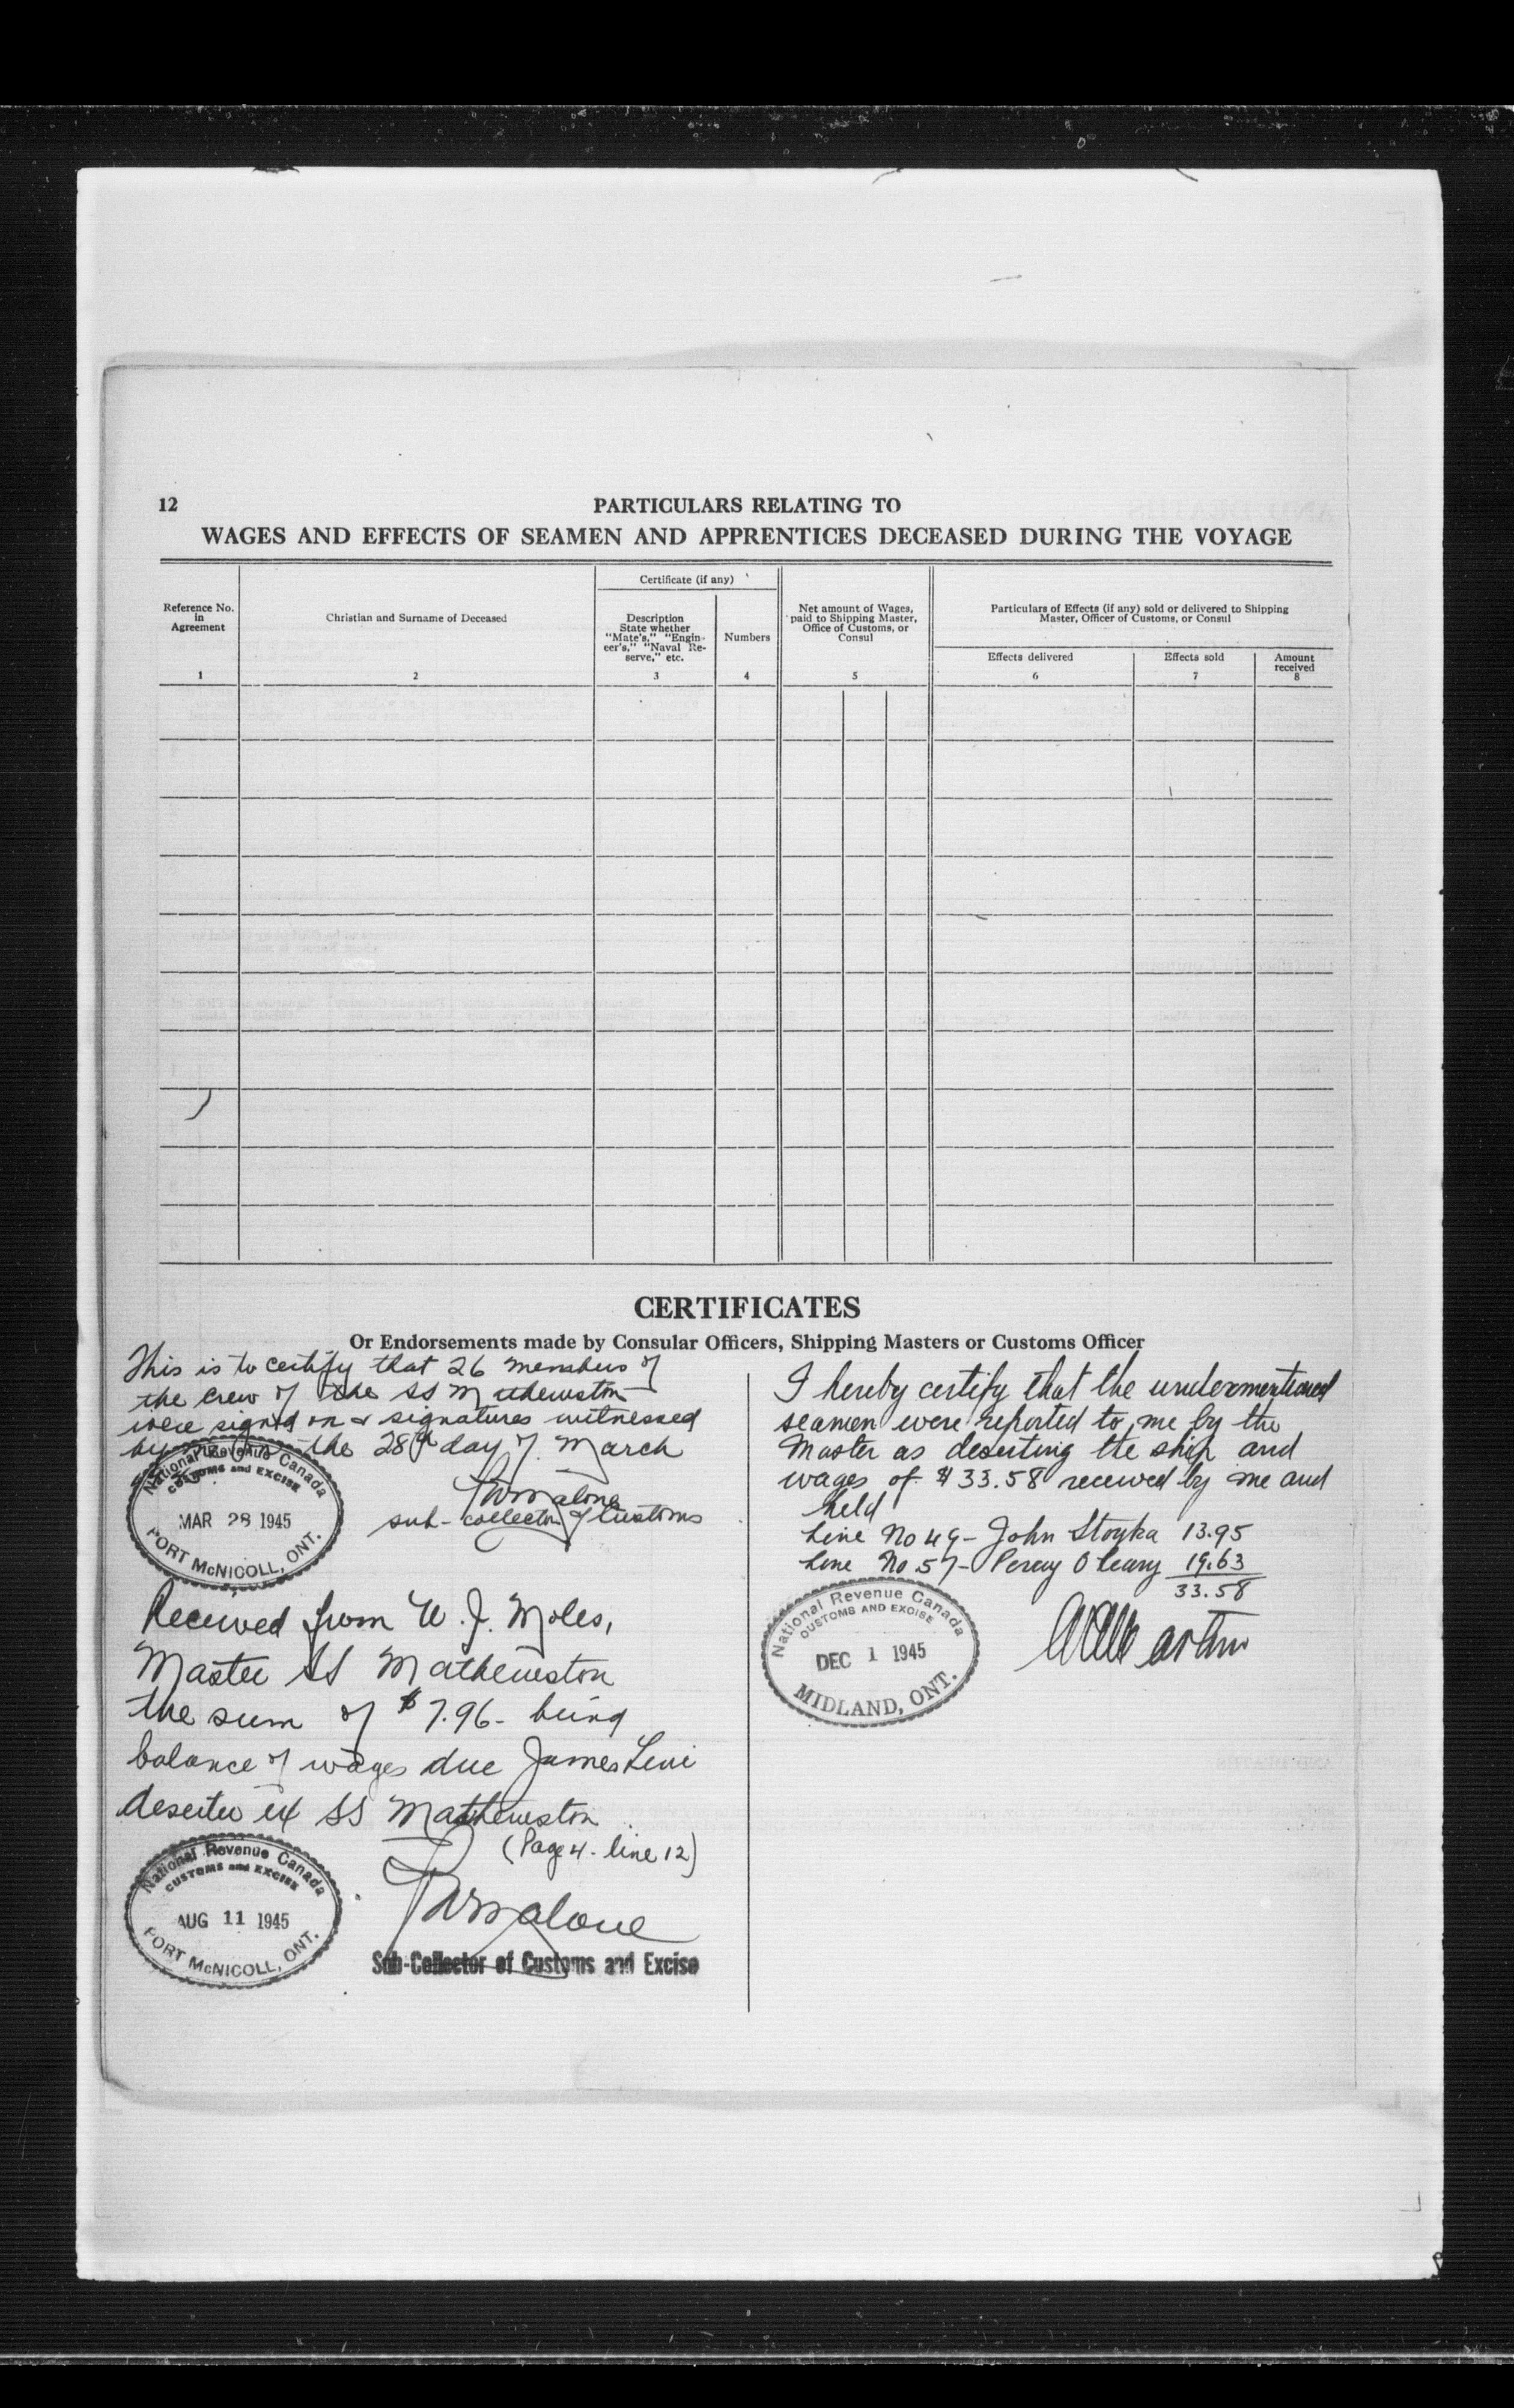 12
PARTICULARS RELATING TO
WAGES AND EFFECTS OF SEAMEN AND APPRENTICES DECEASED DURING THE VOYAGE
Reference No.
in
Agreement
1
Christian and Surname of Deceased
2
Certificate (if any)
Description
State whether
"Mate's," "Engin-
eer's," "Naval Re-
serve," etc.
3
Numbers
4
Net amount of Wages,
paid to Shipping Master,
Office of Customs, or
Consul
5
Particulars of Effects (if any) sold or delivered to Shipping
Master, Officer of Customs, or Consul
Effects delivered
6
Effects sold
7
Amount
received
8
CERTIFICATES
Or Endorsements made by Consular Officers, Shipping Masters or Customs Officer
This is to certify that 26 members of
the crew of the SS Mathewston
were signed on & signatures witnessed
by me the 28th day of March
sub-collector of Customs
National Revenue Canada
CUSTOMS and EXCISE
MAR 28 1945
PORT McNICOLL, ONT.
Received from W. J. Moles,
Master SS Mathewston
the sum of $7.96 - being
balance of wages due James Levi
deserter ex SS Mathewston
(Page 4 - line 12)
Malone
Sub-Collector of Customs and Excise
National Revenue Canada
CUSTOMS and EXCISE
AUG 11 1945
PORT McNICOLL, ONT.
I hereby certify that the undermentioned
seamen were reported to me by the
Master as deserting the ship and
wages of $33.58 received by me and
held
Line No 49 - John Stoyka 13.95
Line No 57 - Percy O'Leary 19.63
33.58
National Revenue Canada
CUSTOMS AND EXCISE
DEC 1 1945
MIDLAND, ONT.